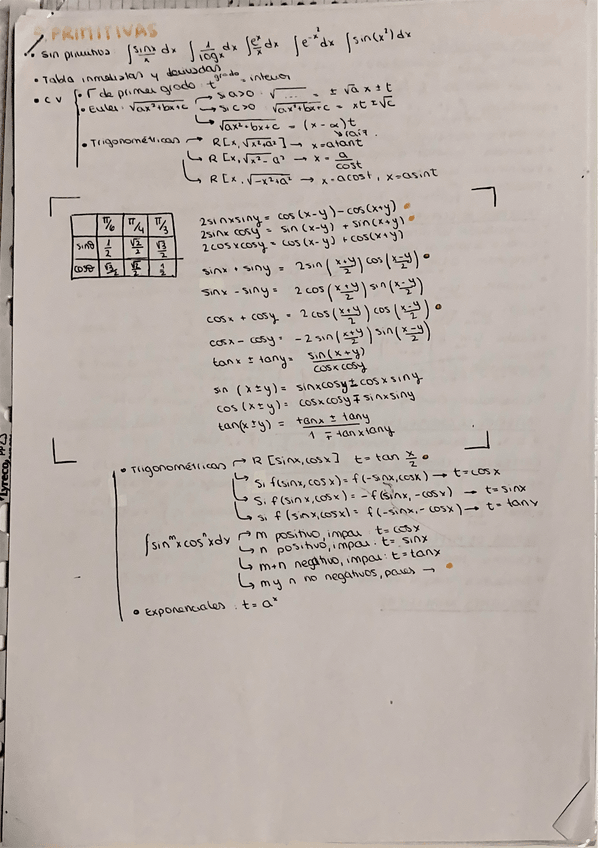 PRIMITIVAS
• Sin primitiva ∫ sinx/x dx ∫ 1/logx dx ∫ e^x/x dx ∫ e^-x² dx ∫ sin(x²) dx
• Tabla inmediatas y derivadas
• CV
• √ de primer grado: t^grado = interior
• Euler: √ax²+bx+c → si a>0: √...... = ± √a x ± t
↳ si c>0: √ax²+bx+c = xt ± √c
↳ √ax²+bx+c = (x-α)t
↘ raíz.
• Trigonométricas → R[x,√x²+a²] → x=atant
↳ R[x,√x²-a² → x = a/cost
↳ R[x,√-x²+a² → x=acost, x=asint
π/6 π/4 π/3
sinθ 1/2 √2/2 √3/2
cosθ √3/2 √2/2 1/2
2sinxsiny = cos(x-y) - cos(x+y)
2sinx cosy = sin(x-y) + sin(x+y)
2cosxcosy = cos(x-y) + cos(x+y)
sinx + siny = 2sin(x+y/2) cos(x-y/2)
sinx - siny = 2cos(x+y/2) sin(x-y/2)
cosx + cosy = 2cos(x+y/2) cos(x-y/2)
cosx - cosy = -2sin(x+y/2) sin(x-y/2)
tanx ± tany = sin(x+y)/cosxcosy
sin (x±y) = sinxcosy ± cosxsiny
cos (x±y) = cosxcosy ∓ sinxsiny
tan(x±y) = tanx ± tany / 1 ∓ tanxtany
Lyreco,
• Trigonométricas → R[sinx,cosx] t = tan x/2
↳ si f(sinx,cosx) = f(-sinx,cosx) → t=cosx
↳ si f(sinx,cosx) = -f(sinx,-cosx) → t=sinx
↳ si f(sinx,cosx) = f(-sinx,-cosx) → t=tanx
∫sin^m x cos^n x dx → m positivo, impar t=cosx
↳ n positivo, impar: t= sinx
↳ m+n negativo, impar: t=tanx
↳ m y n no negativos, pares →
• Exponenciales: t= a^x